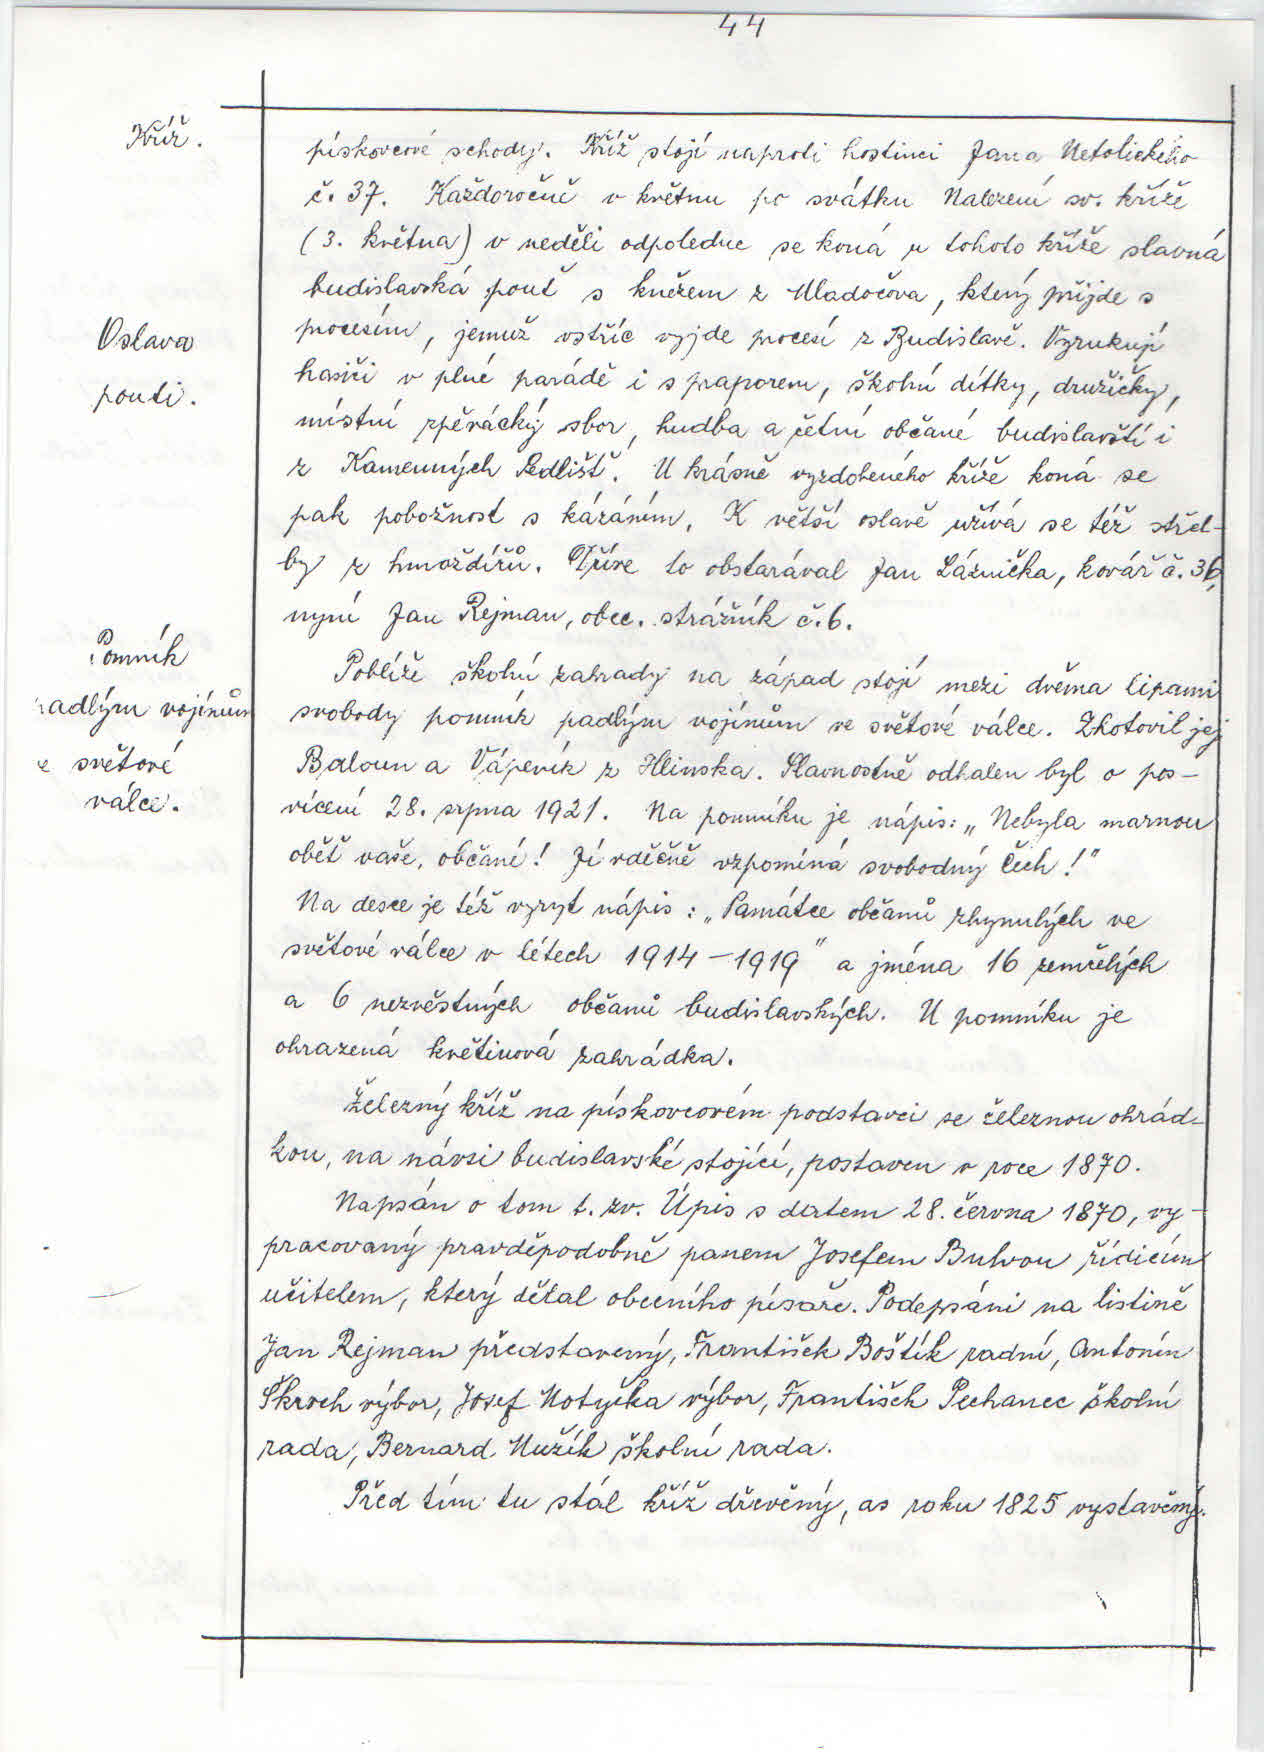 44
Kříž.
pískovcové schody. Kříž stojí naproti hostinci Jana Netolického
č. 37. Každoročně v květnu po svátku Nalezení sv. kříže
(3. května) v neděli odpoledne se koná u tohoto kříže slavná
budislavská pouť s knězem z Mladočova, který přijde s
procesím, jemuž vstříc vyjde procesí z Budislavě. Vyrukují
Oslava
pouti.
hasiči v plné parádě i s praporem, školní dítky, družičky,
místní zpěvácký sbor, hudba a četní občané budislavští i
z Kamenných Sedlišť. U krásně vyzdobeného kříže koná se
pak pobožnost s kázáním. K větší oslavě užívá se též střel-
by z hmoždířů. Dříve to obstarával Jan Láznička, kovář č. 36,
nyní Jan Rejman, obec. strážník č. 6.
Pomník
adlým vojínům
e světové
válce.
Poblíže školní zahrady na západ stojí mezi dvěma lipami
svobody pomník padlým vojínům ve světové válce. Zhotovil jej
Baloun a Vápeník z Hlinska. Slavnostně odhalen byl o pos-
vícení 28. srpna 1921. Na pomníku je nápis: „Nebyla marnou
oběť vaše, občané! Jí vděčně vzpomíná svobodný Čech!"
Na desce je též vyryt nápis: „Památce občanů zhynulých ve
světové válce v létech 1914 – 1919" a jména 16 zemřelých
a 6 nezvěstných občanů budislavských. U pomníku je
ohrazená květinová zahrádka.
Železný kříž na pískovcovém podstavci se železnou ohrád-
kou, na návsi budislavské stojící, postaven v roce 1870.
Napsán o tom t. zv. Úpis s datem 28. června 1870, vy-
pracovaný pravděpodobně panem Josefem Bulvou řídícím
učitelem, který dělal obecního písaře. Podepsáni na listině
Jan Rejman představený, František Boštík radní, Antonín
Škroch výbor, Josef Motyčka výbor, František Pechanec školní
rada, Bernard Mužík školní rada.
Před tím tu stál kříž dřevěný, as roku 1825 vystavěný.